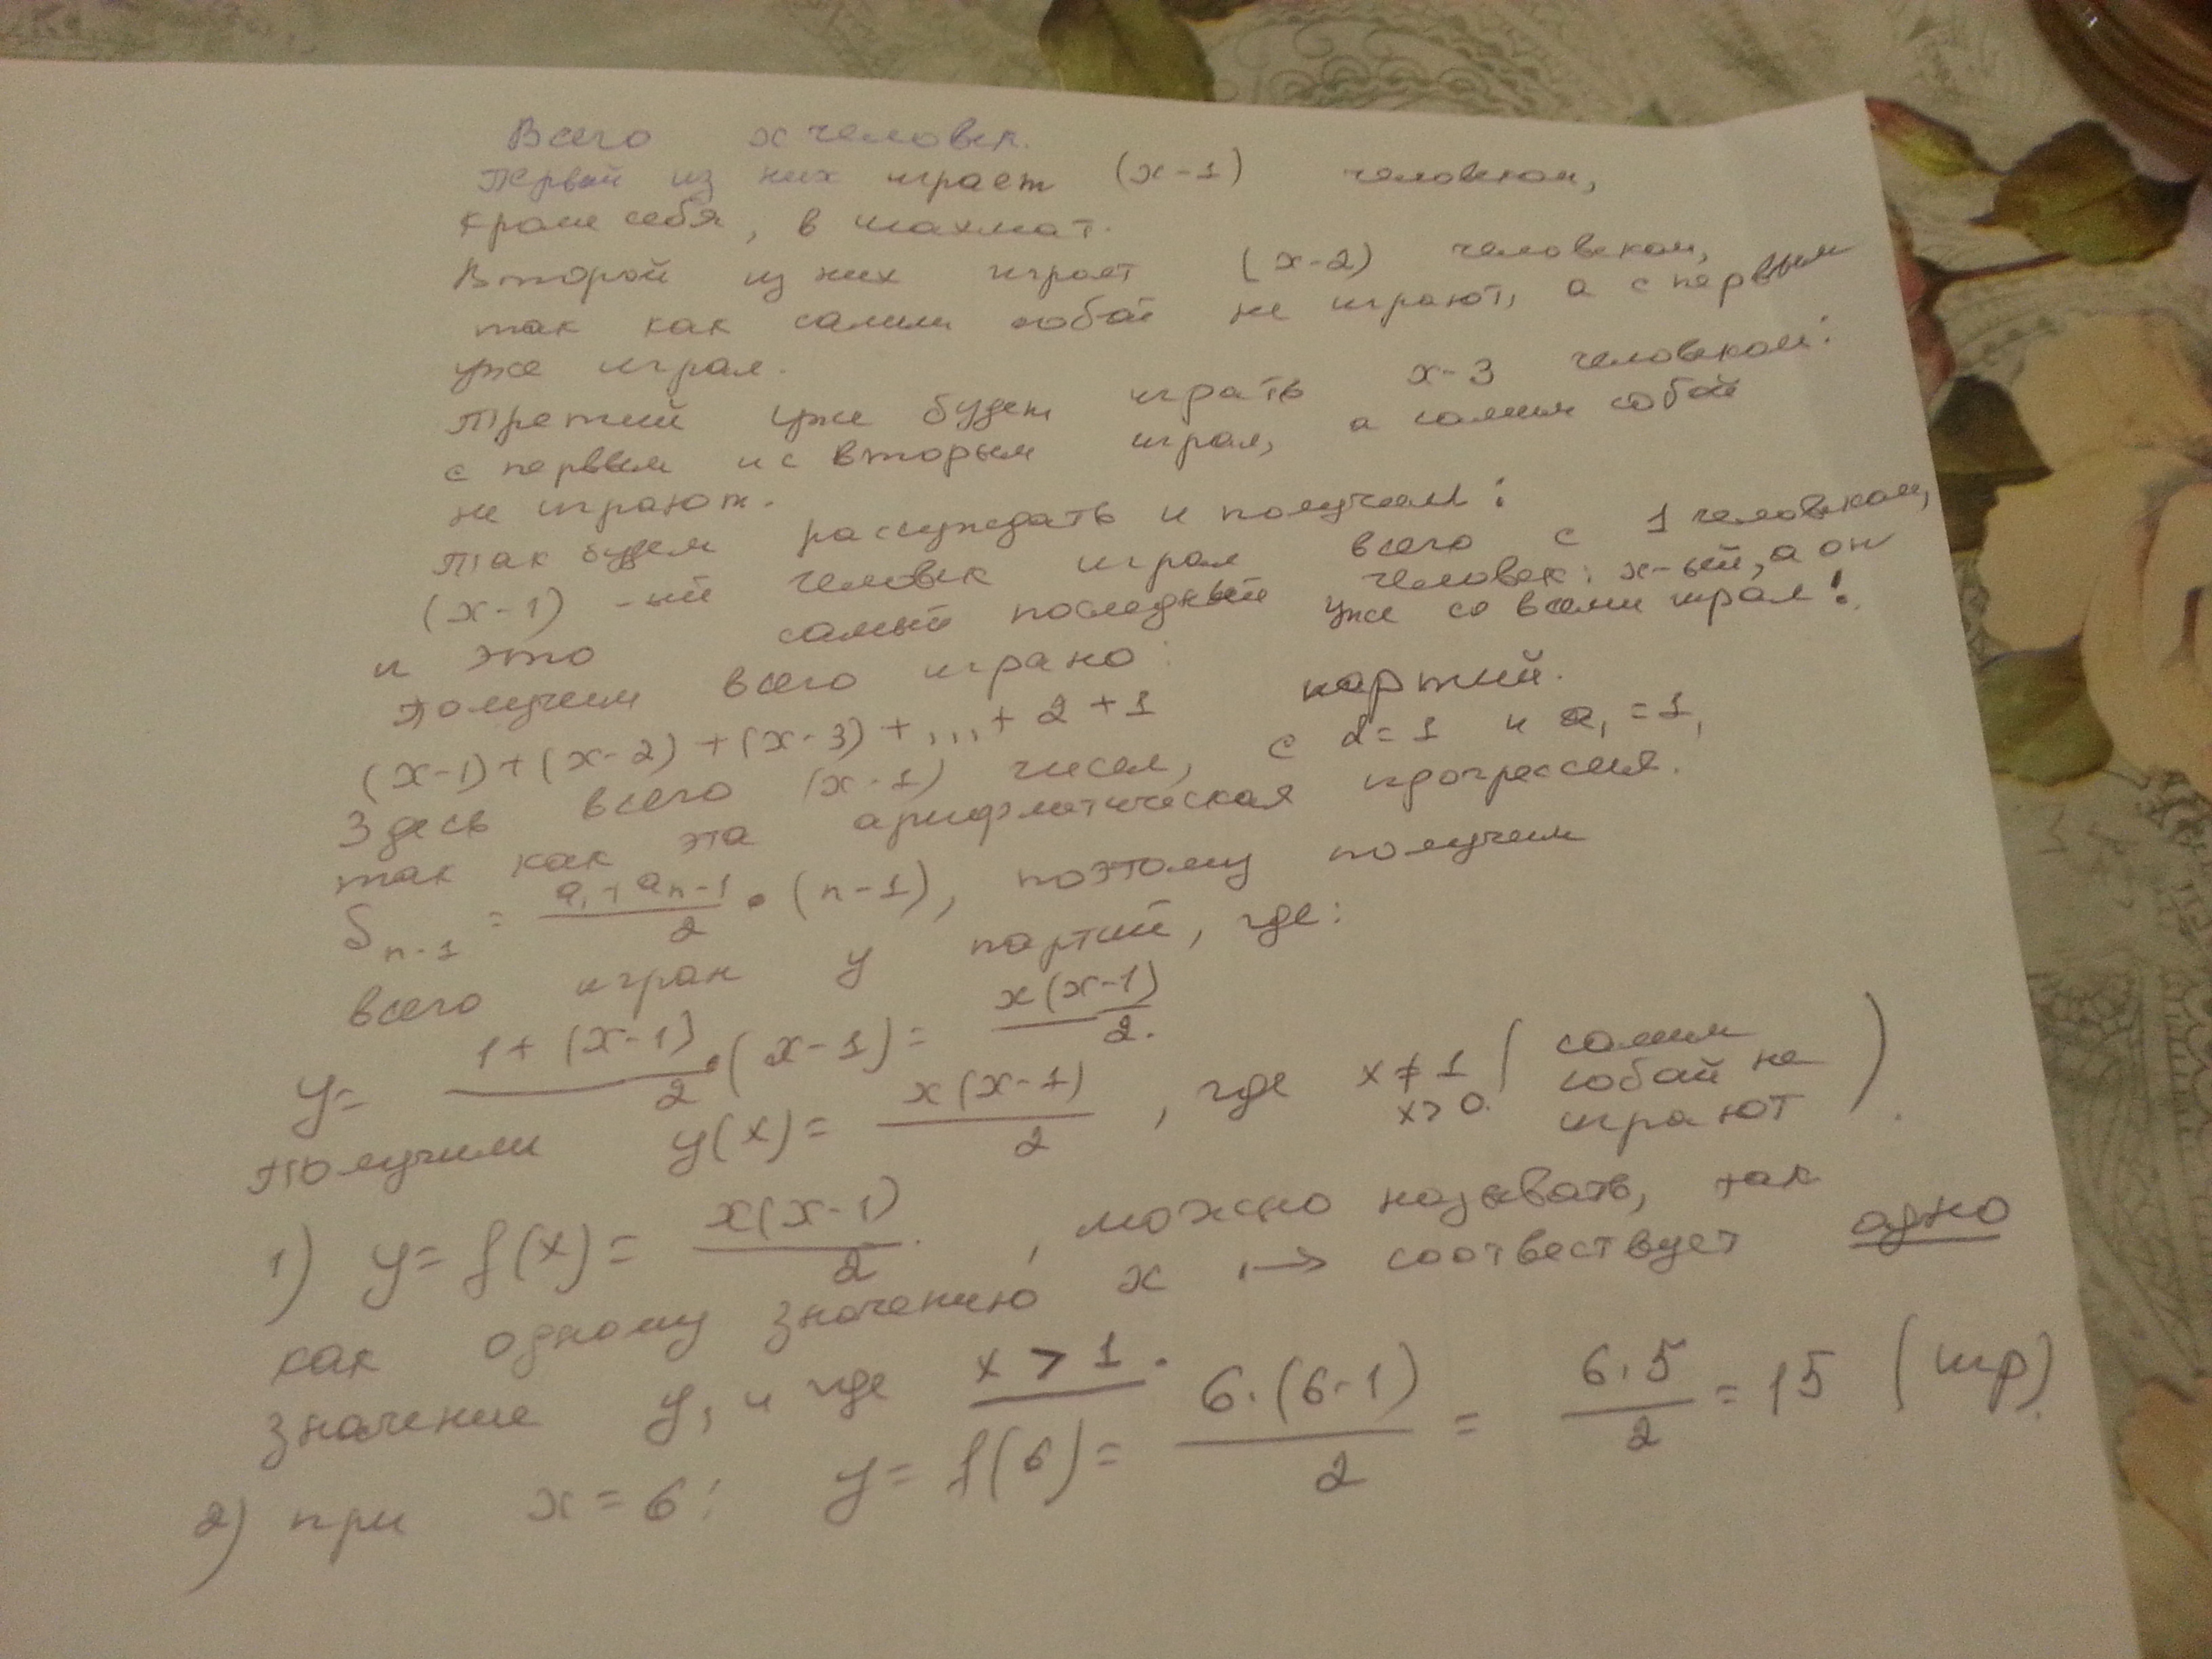 Всего x человек.
Первый из них играет (x-1) человеком,
кроме себя, в шахмат.
Второй из них играет (x-2) человеком,
так как самим собой не играют, а с первым
уже играл.
Третий уже будет играть x-3 человеком:
с первым и с вторым играл, а самим собой
не играют.
Так будем рассуждать и получим:
(x-1)-ый человек играл всего с 1 человеком,
и это самый последный человек: x-ый, а он
уже со всеми играл!
Получим всего играно:
(x-1)+(x-2)+(x-3)+...+2+1 партий.
Здесь всего (x-1) чисел, с d=1 и a₁=1,
так как эта арифметическая прогрессия.
S_{n-1} = \frac{a_1+a_{n-1}}{2}·(n-1), поэтому получим
всего игран y партий, где:
y= \frac{1+(x-1)}{2}·(x-1)= \frac{x(x-1)}{2}.
Получили y(x)= \frac{x(x-1)}{2}, где x≠1 x>0. (самим собай не играют).
1) y= f(x)= \frac{x(x-1)}{2}, можно называть, так
как одному значению x ↦ соотвествует одно
значение y, и где x > 1.
2) при x=6: y= f(6)= \frac{6·(6-1)}{2} = \frac{6·5}{2} = 15 (игр).